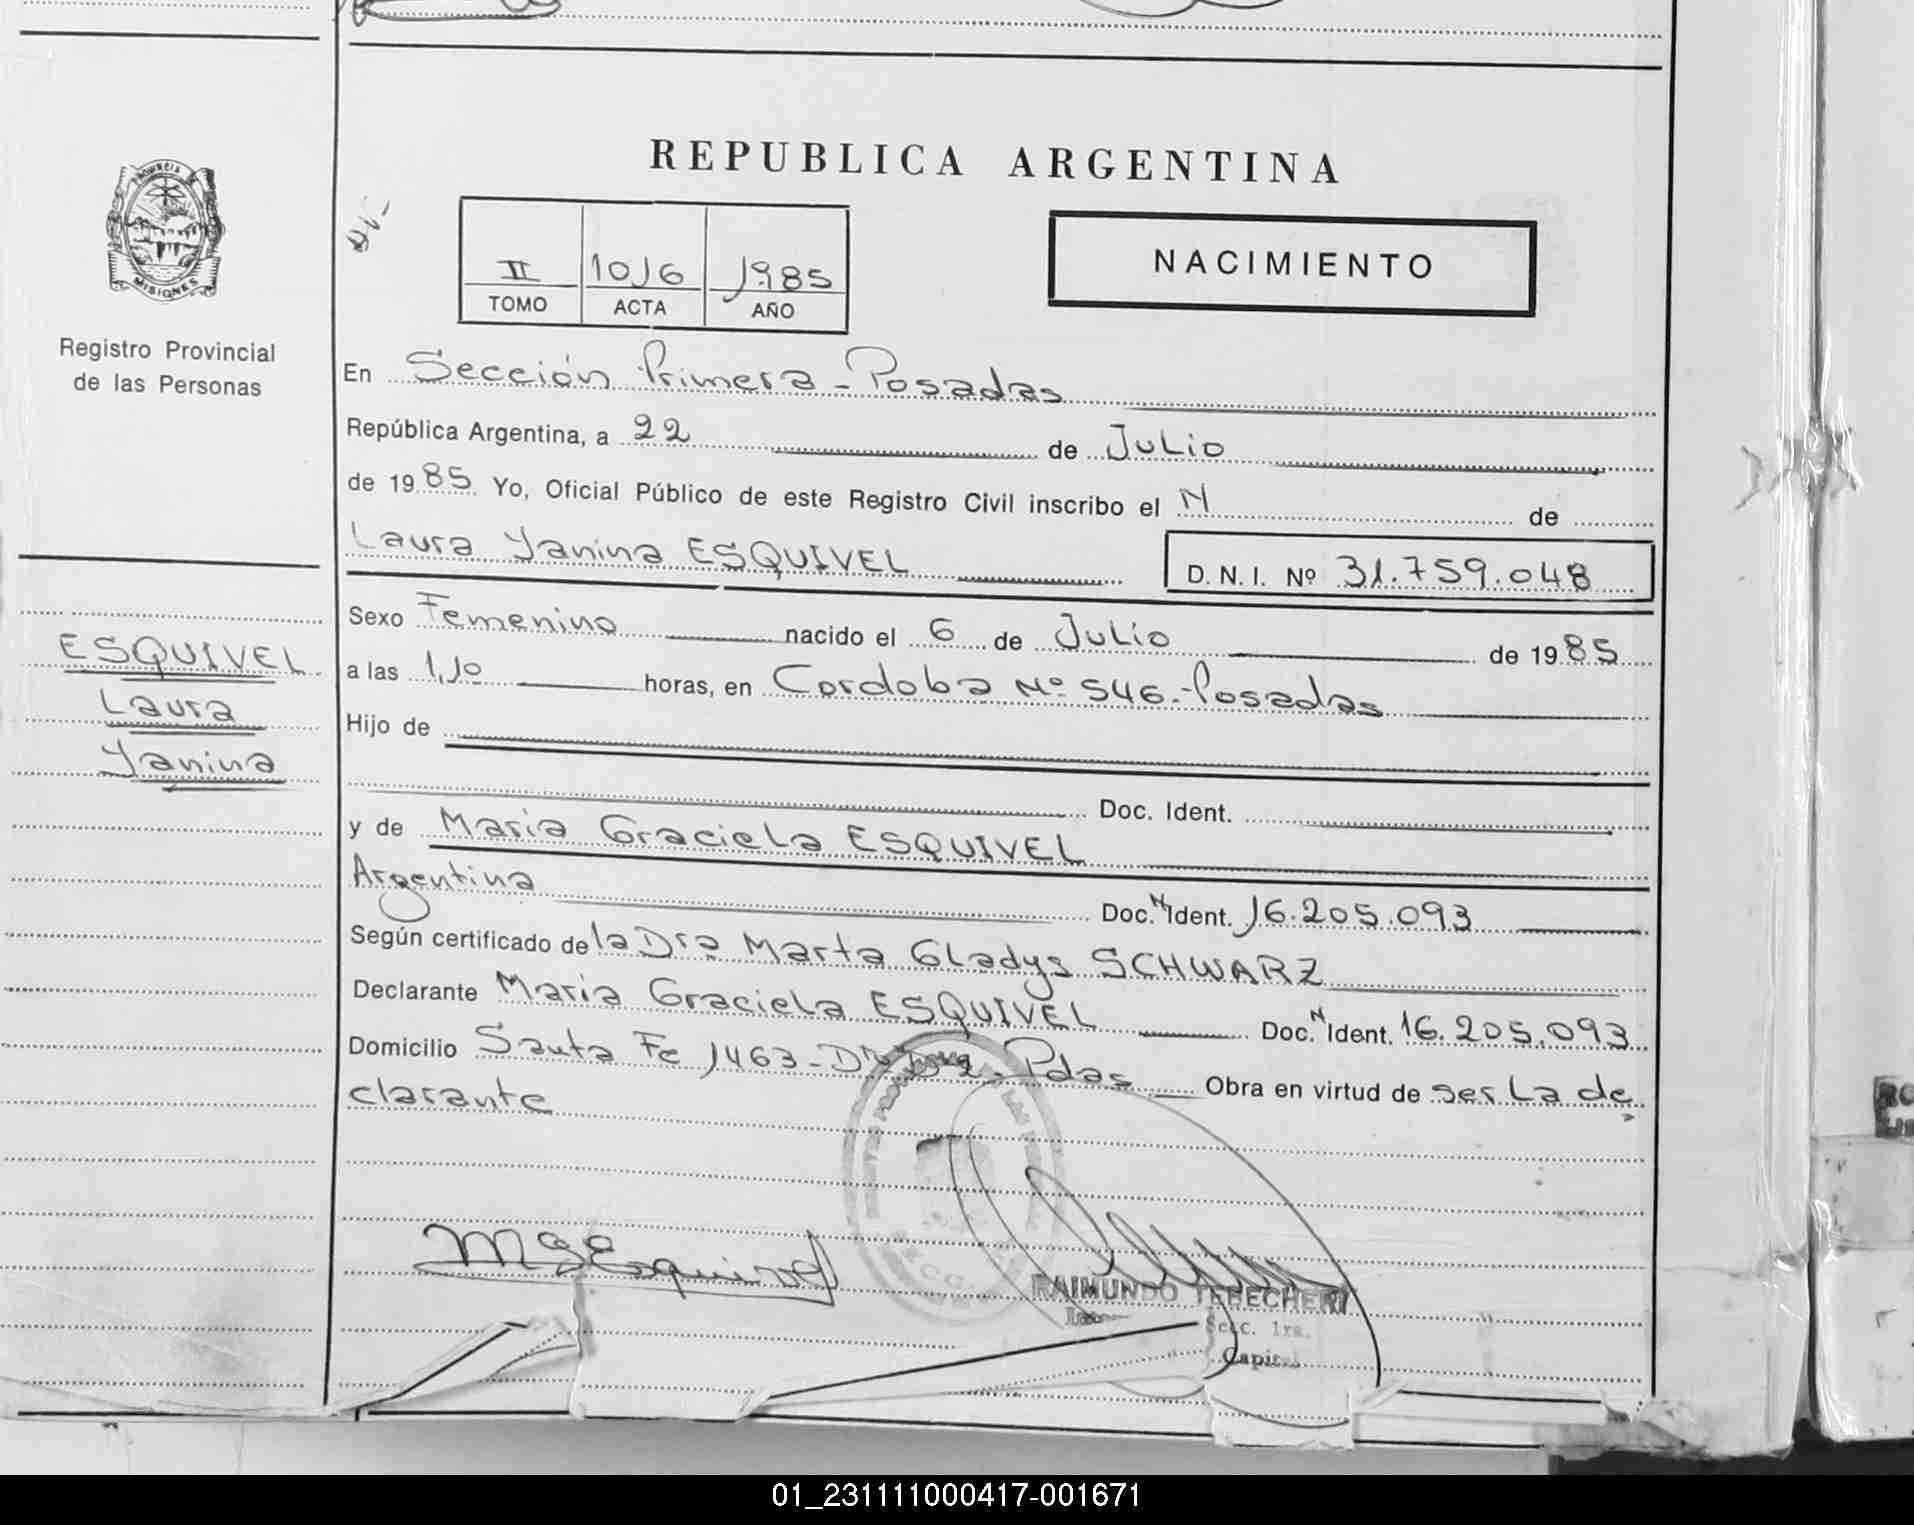 REPUBLICA ARGENTINA
PROVINCIA DE
MISIONES
Registro Provincial
de las Personas
II 1016 1985
TOMO ACTA AÑO
NACIMIENTO
En Sección Primera - Posadas
República Argentina, a 22 de Julio
de 1985 Yo, Oficial Público de este Registro Civil inscribo el N de
Laura Yanina ESQUIVEL D. N. I. Nº 31.759.048
Sexo Femenino nacido el 6 de Julio de 1985
a las 1,10 horas, en Cordoba Nº 546.- Posadas
Hijo de
Doc. Ident.
y de Maria Graciela ESQUIVEL
Argentina Doc. N Ident. 16.205.093
Según certificado de la Dra Marta Gladys SCHWARZ
Declarante Maria Graciela ESQUIVEL Doc. N Ident. 16.205.093
Domicilio Santa Fe 1463 - Pdas Obra en virtud de ser la de
clarante
ESQUIVEL
Laura
Yanina
MGEsquivel
RAIMUNDO TEBECHERI
Secc. 1ra.
Capital
01_231111000417-001671